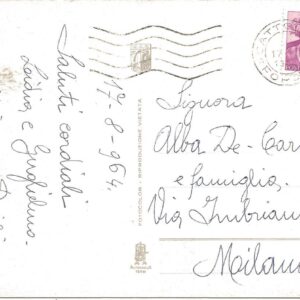 Saluti cordiali
Lidia e Guglielmo
17-8-964
FOTOCOLOR - RIPRODUZIONE VIETATA
Signora
Alba De-Car
e famiglia
Via Imbriani
Milano